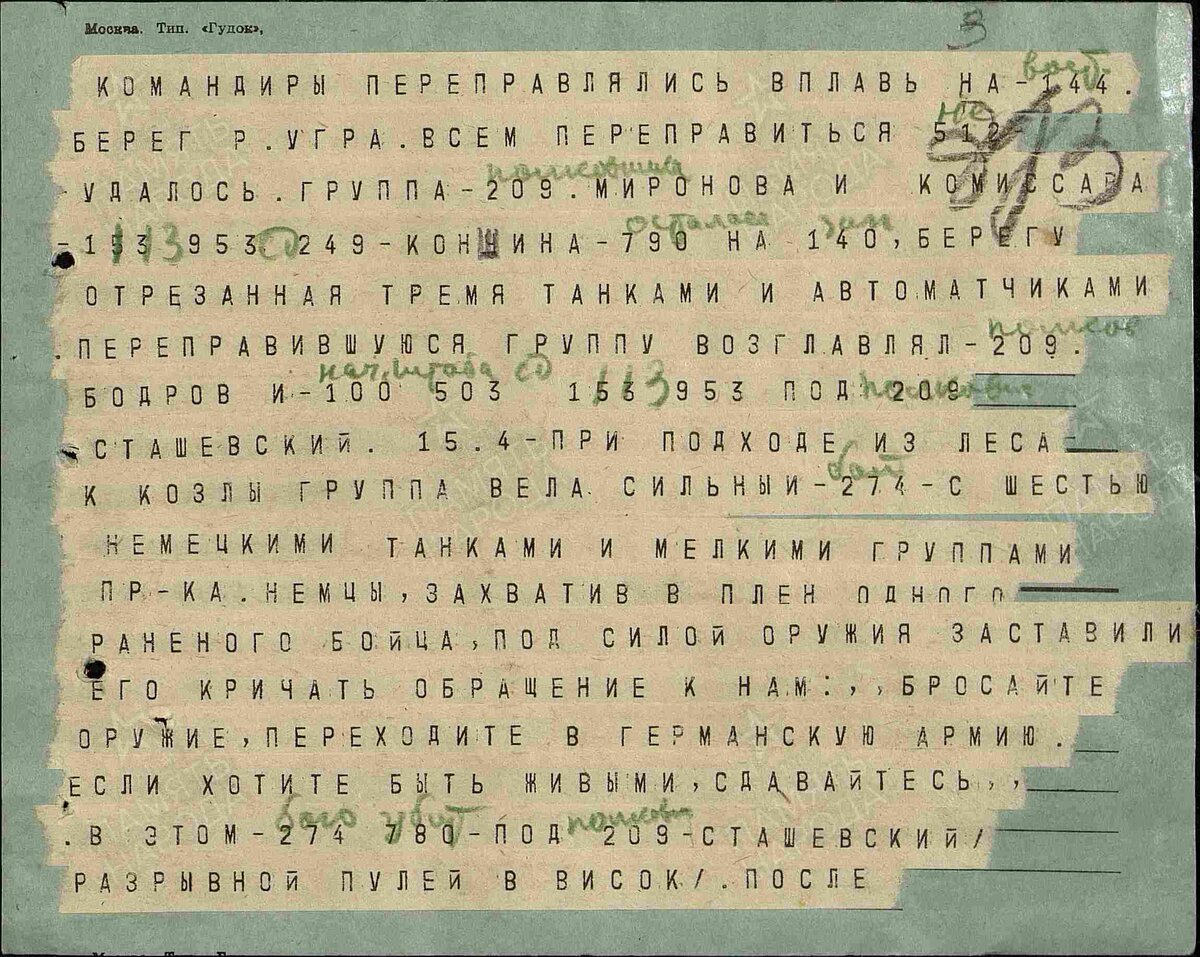 Москва. Тип. «Гудок»,
3
вост.
КОМАНДИРЫ ПЕРЕПРАВЛЯЛИСЬ ВПЛАВЬ НА-144.
не
БЕРЕГ Р.УГРА.ВСЕМ ПЕРЕПРАВИТЬСЯ 512-
УДАЛОСЬ.ГРУППА-209.МИРОНОВА И КОМИССАРА
осталась зап
113 СД
-153 953 249-КОНШИНА-790 НА 140,БЕРЕГУ
ОТРЕЗАННАЯ ТРЕМЯ ТАНКАМИ И АВТОМАТЧИКАМИ
полков
.ПЕРЕПРАВИВШУЮСЯ ГРУППУ ВОЗГЛАВЛЯЛ-209.
нач. штаба СД 113
БОДРОВ И-100 503 153 953 ПОД 209
СТАШЕВСКИЙ. 15.4-ПРИ ПОДХОДЕ ИЗ ЛЕСА-
бой
К КОЗЛЫ ГРУППА ВЕЛА СИЛЬНЫЙ-274-С ШЕСТЬЮ
НЕМЕЦКИМИ ТАНКАМИ И МЕЛКИМИ ГРУППАМИ
ПР-КА.НЕМЦЫ,ЗАХВАТИВ В ПЛЕН ОДНОГО
РАНЕНОГО БОЙЦА,ПОД СИЛОЙ ОРУЖИЯ ЗАСТАВИЛИ
ЕГО КРИЧАТЬ ОБРАЩЕНИЕ К НАМ:,,БРОСАЙТЕ
ОРУЖИЕ,ПЕРЕХОДИТЕ В ГЕРМАНСКУЮ АРМИЮ.
ЕСЛИ ХОТИТЕ БЫТЬ ЖИВЫМИ,СДАВАЙТЕСЬ,,
бою убит полковн
.В ЭТОМ-274 780-ПОД 209-СТАШЕВСКИЙ/
РАЗРЫВНОЙ ПУЛЕЙ В ВИСОК/.ПОСЛЕ